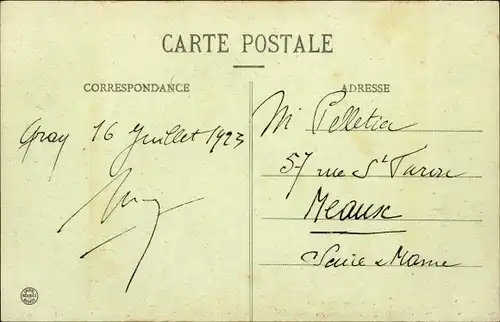 CARTE POSTALE
CORRESPONDANCE
ADRESSE
Gray 16 Juillet 1923
Mr Pelletier
57 rue St Faron
Meaux
Seine & Marne